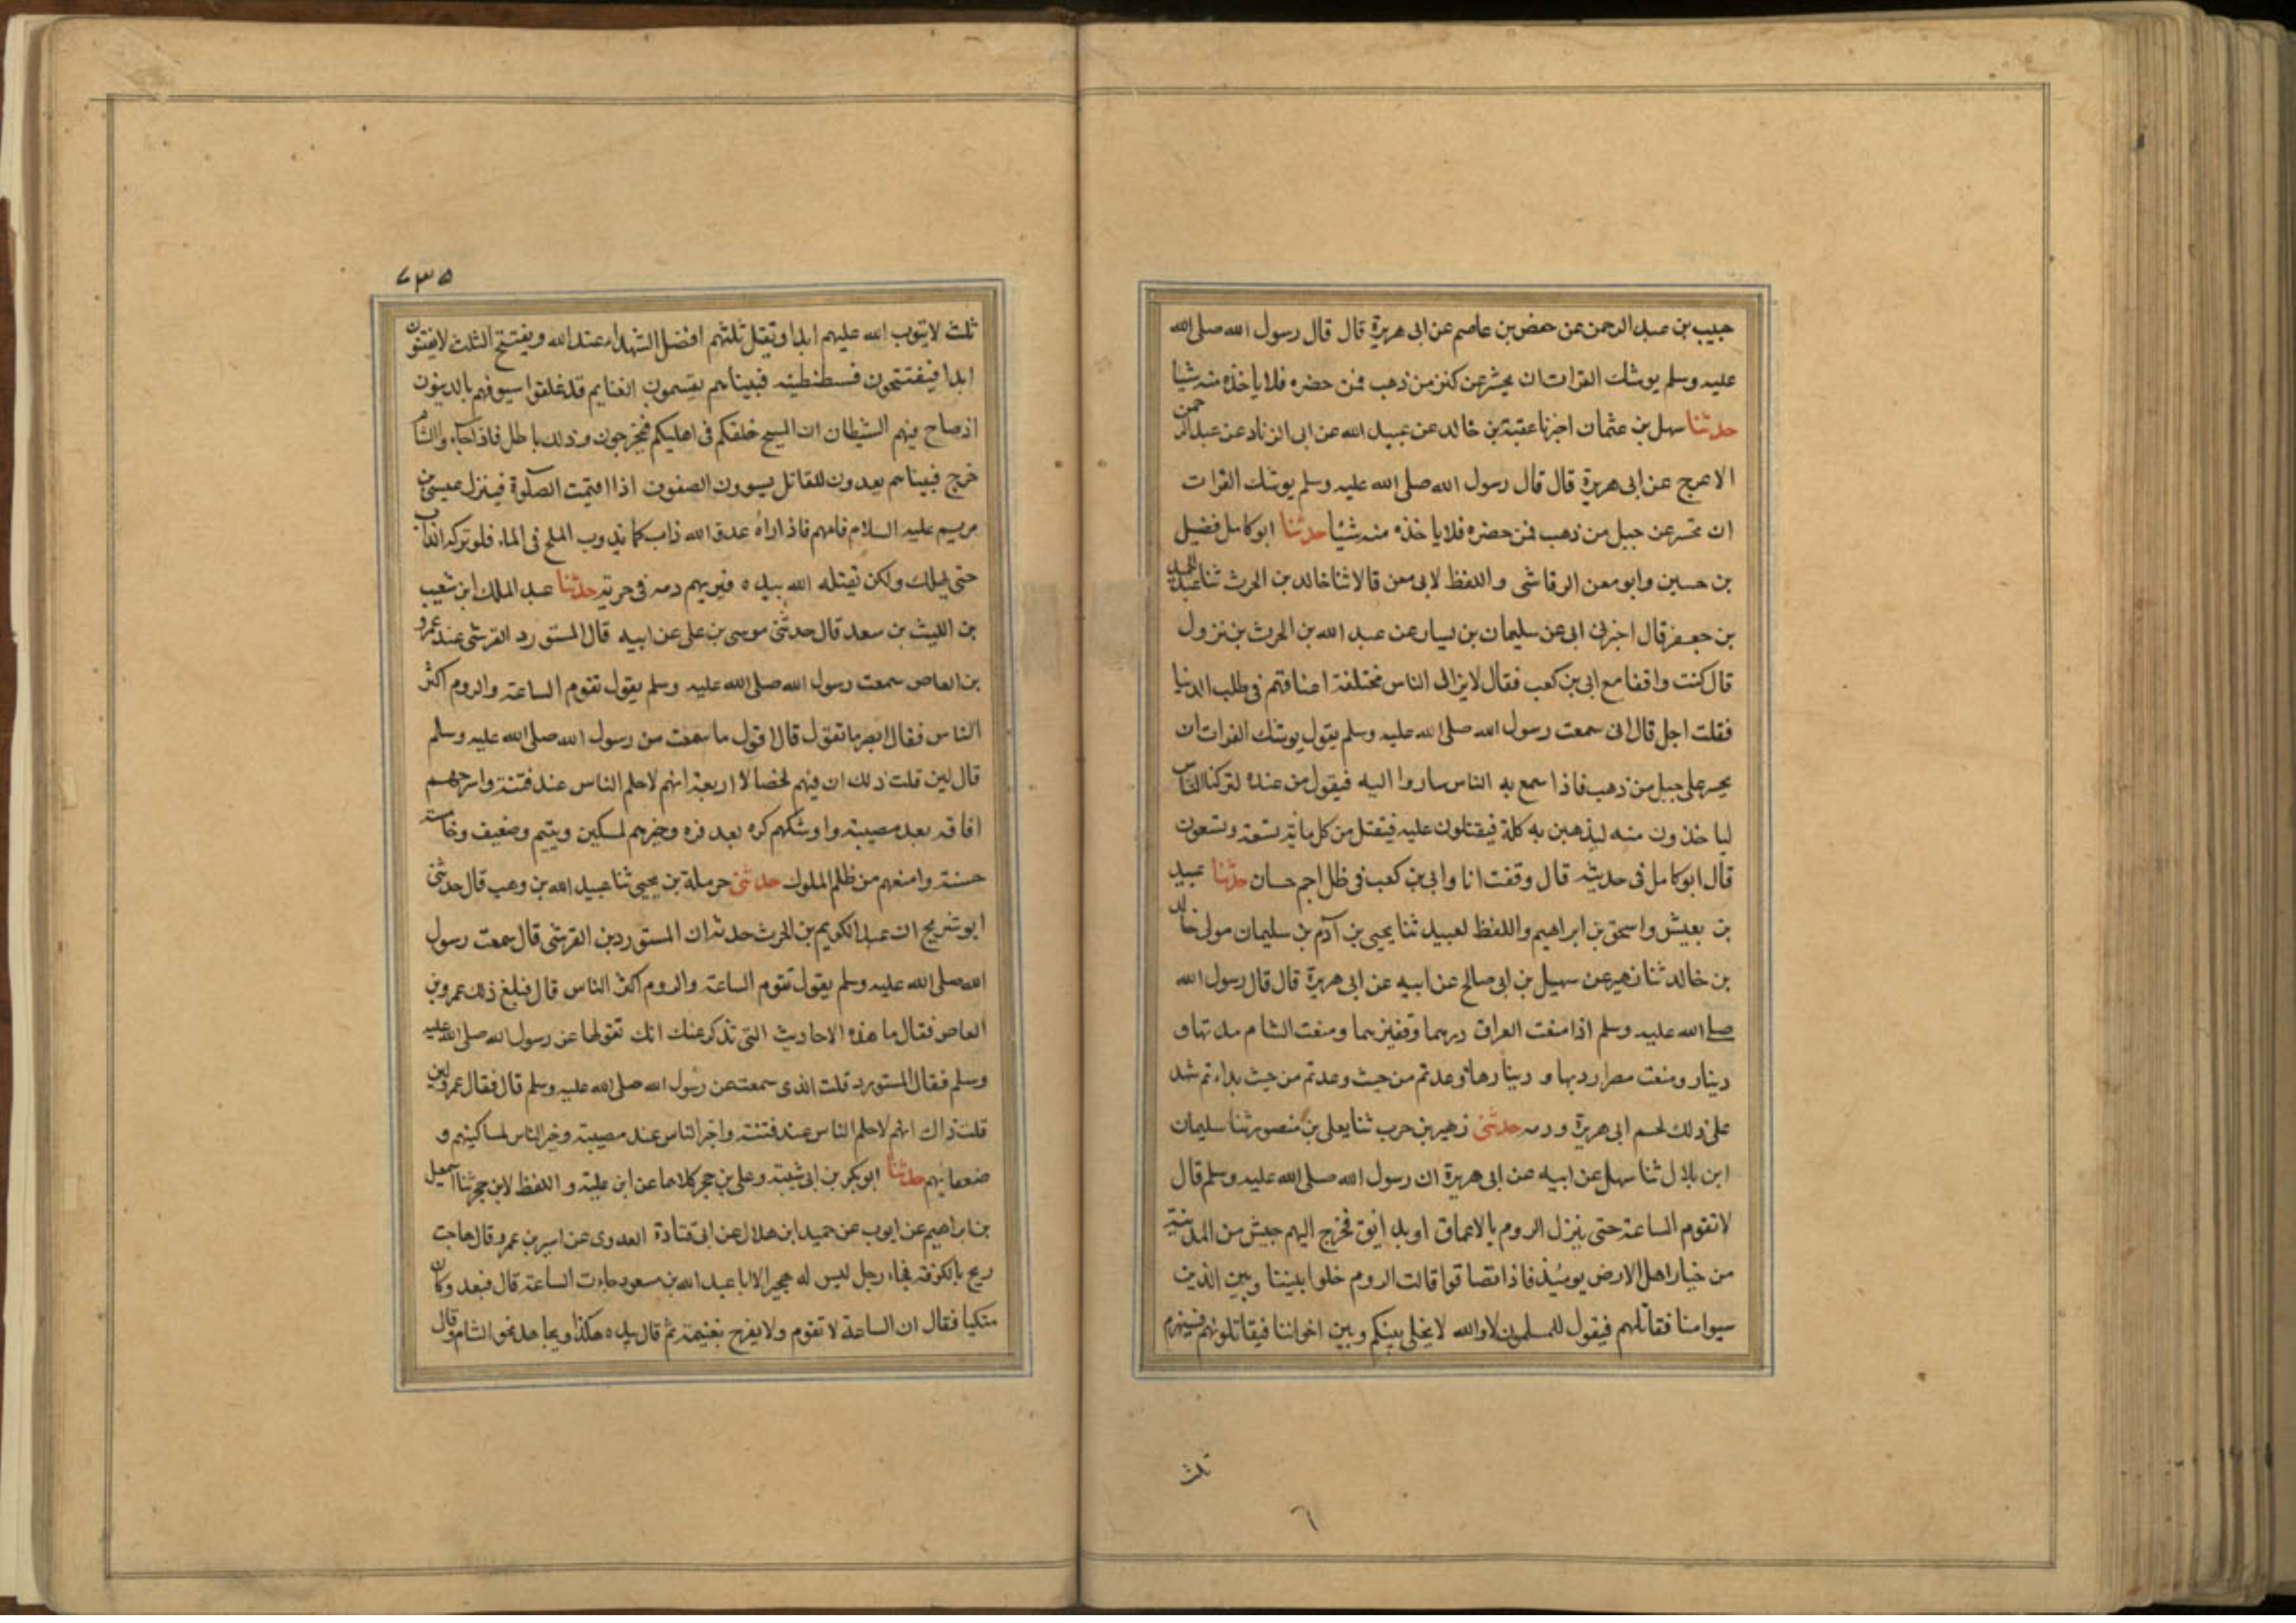 حبيب بن عبد الرحمن عن حفص بن عاصم عن ابى هريرة قال قال رسول الله صلى الله
عليه وسلم يوشك الفرات ان يحشر عن كنز من ذهب فمن حضره فلا ياخذه منه شيا
حدثنا سهل بن عثمان اخبرنا عقبة بن خالد عن عبيد الله عن ابى الزناد عن عبد الرحمن
الاعرج عن ابى هريرة قال قال رسول الله صلى الله عليه وسلم يوشك الفرات
ان تحسر عن جبل من ذهب فمن حضره فلا يا خذه منه شيئا حدثنا ابو كامل فضيل
بن حسين وابو معن الرقاشى واللفظ لابى معن قالا ثنا خالد بن الحرث ثنا عبد الحميد
بن جعفر قال اخبرنى ابى عن سليمان بن يسار عن عبد الله بن الحرث بن نزول
قال كنت واقفا مع ابى بن كعب فقال لايزالى الناس مختلفة اعناقهم فى طلب الدنيا
فقلت اجل قال انى سمعت رسول الله صلى الله عليه وسلم يقول يوشك الفرات ان
يحسر على جبل من ذهب فاذا سمع به الناس ساروا اليه فيقول من عنده لتركنا الناس
ليا خذون منه ليذهبن به كلة فيقتلون عليه فيقتل من كل مائة تسعة وتسعون
قال ابو كامل فى حديثه قال وقفت انا وابى بن كعب فى ظل اجم حسان حدثنا عبيد
بن بعيش واسحق بن ابراهيم واللفظ لعبيد ثنا يحيى بن آدم بن سليمان مولى خالد
بن خالد ثنا زهير عن سهيل بن ابى صالح عن ابيه عن ابى هريرة قال قال رسول الله
صلى الله عليه وسلم اذا منعت العراق درهما وقفيزهما ومنعت الشام مدتها و
دينار ومنعت مصر اردبها و دينارها وعدتم من حيث وعدتم من حيث بداءتم شهد
على ذلك لحم ابى هريرة ودمه حدثنى زهير بن حرب ثنا يعلى بن منصور ثنا سليمان
ابن بلال ثنا سهل عن ابيه عن ابى هريرة ان رسول الله صلى الله عليه وسلم قال
لا تقوم الساعة حتى ينزل الروم بالاعماق او بدانيق فخرج اليهم جيش من المدينة
من خيار اهل الارض يومئذ فاذا تصا قوا قالت الروم خلوا بيننا وبين الذين
سبوا منا فقاتلهم فيقول للمسلمون لا والله لا يخلى بينكم وبين اخواننا فيقاتلونهم فينهزم
ثلث
٦
٧٣٥
ثلث لا يتوب الله عليهم ابدا ويقتل ثلثهم افضل الشهداء عند الله ويفتتح الثلث لا يفتنون
ابدا فيفتتحون قسطنطنيه فبيناهم يقتسمون الغنايم قد غلقوا سيوفهم بالديتون
اذ صاح فيهم الشيطان ان المسيح خلفكم فى اهليكم فيخرجون وذلك باطل فاذا جاءوا الشام
خرج فبيناهم يعدون للقاتل يسوون الصفوف اذا اقيمت الصلوة فينزل عيسى بن
مريم عليه السلام فامهم فاذا اراه عدو الله ذاب كما يذوب الملح فى الماء فلو تركه انذاب
حتى يهلك ولكن يقتله الله بيده فيريهم دمه فى حربته حدثنا عبد الملك ابن شعيب
بن الليث بن سعد قال حدثنى موسى بن على عن ابيه قال المستورد القرشى عند عمرو
بن العاص سمعت رسول الله صلى الله عليه وسلم يقول تقوم الساعة والروم اكثر
الناس فقال ابصر ما تقول قال اقول ما سمعت من رسول الله صلى الله عليه وسلم
قال لين قلت ذلك ان فيهم لخصالا اربعة انهم لاحلم الناس عند فتنة واسرعهم
افاقه بعد مصيبة واوشكهم كره بعد فره وخيرهم لمسكين ويتيم وضعيف وخامسة
حسنة وامنعهم من ظلم الملوك حدثنى حرملة بن يحيى ثنا عبيد الله بن وهب قال حدثنى
ابو شريح ان عبد الكريم بن الحرث حدثه ان المستورد بن القرشى قال سمعت رسول
الله صلى الله عليه وسلم يقول تقوم الساعة والروم اكثر الناس قال فبلغ ذلك عمرو بن
العاص فقال ما هذه الاحاديث التى تذكر عنك انك تقولها عن رسول الله صلى الله عليه
وسلم فقال المستورد قلت الذى سمعت عن رسول الله صلى الله عليه وسلم قال فقال عمرو لين
قلت ذاك انهم لاحلم الناس عند فتنة واجبر الناس عند مصيبة وخير الناس لمساكينهم و
ضعفايهم حدثنا ابو بكر بن ابى شيبة وعلى بن حجر كلاهما عن ابن علية واللفظ لابن حجر ثنا اسمعيل
بن ابراهيم عن ايوب عن حميد ابن هلال عن ابى قتادة العدوى عن اسير بن عمرو قال هاجت
ريح بالكوفة فجاء رجل ليس له هجير الا ابا عبد الله بن مسعود جاءت الساعة قال فبعد وكان
متكيا فقال ان الساعة لا تقوم ولا يفرح بغنيمة ثم قال بيده هكذا ويجاهد نحو الشام وقال